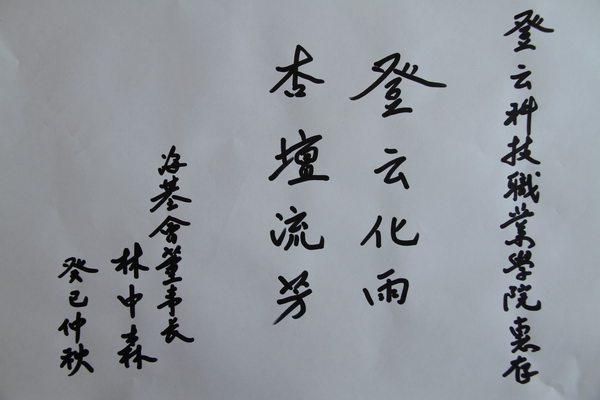 登云科技職業學院惠存
登云化雨
杏壇流芳
海基會董事长
林中森
癸巳仲秋